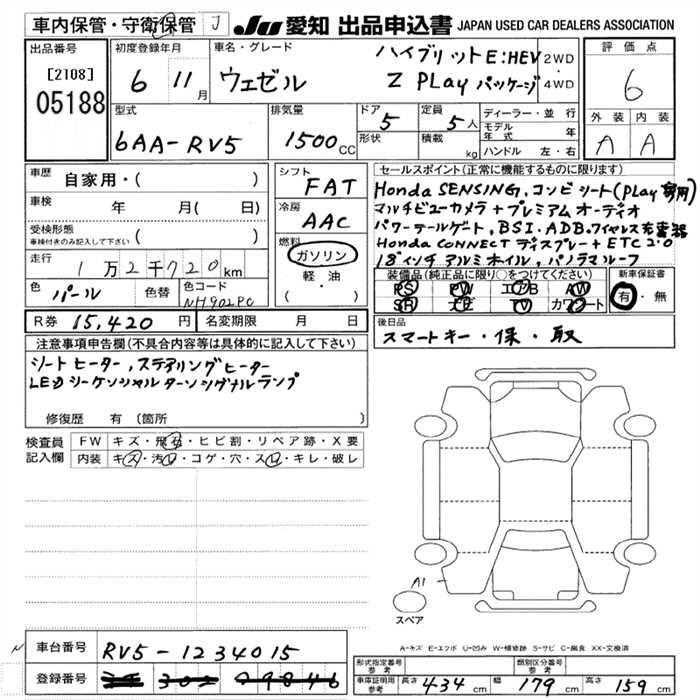 車内保管・守衛保管 J JU 愛知 出品申込書 JAPAN USED CAR DEALERS ASSOCIATION
出品番号
[2108]
05188
初度登録年月
6 11月
車名・グレード
ヴェゼル
ハイブリットE:HEV
Z PLayパッケージ
2WD
4WD
評価点
6
外装 内装
A A
型式
6AA-RV5
排気量
1500cc
ドア
5
形状
定員
5人
積載
kg
ディーラー・並行
モデル年式 年
ハンドル 左・右
車歴
自家用・( )
車検
年 月( 日)
受検形態
車検付きのみ記入して下さい
( )
走行
1万2千720km
色
パール
色替
色コード
NH902PC
シフト
FAT
冷房
AAC
燃料
ガソリン
軽・油
( )
R券 15,420円
名変期限 月 日
セールスポイント(正常に機能するものに限ります)
Honda SENSING、コンビシート(PLay専用)
マルチビューカメラ+プレミアムオーディオ
パワーテールゲート、BSI、ADB、ワイヤレス充電器
Honda CONNECTディスプレー+ETC2.0
18インチアルミホイル、パノラマルーフ
装備品(純正品に限り○をつけてください)
PS PW エアB AW
SR ナビ TV カワシート
新車保証書
有・無
後日品
スマートキー・保・取
注意事項申告欄(不具合内容等は具体的に記入して下さい)
シートヒーター、ステアリングヒーター
LEDシーケンシャルターンシグナルランプ
修復歴 有(箇所 )
検査員
記入欄
FW キズ・飛石・ヒビ割・リペア跡・X要
内装 キズ・汚レ・コゲ・穴・スレ・キレ・破レ
A1
スペア
A-キズ E-エクボ U-凹み W-補修跡 S-サビ C-腐食 XX-交換済
N
車台番号 RV5-1234015
登録番号
形式指定番号
参考
類別区分番号
参考
車庫証明用
参考
長さ 434cm 幅 179cm 高さ 159cm